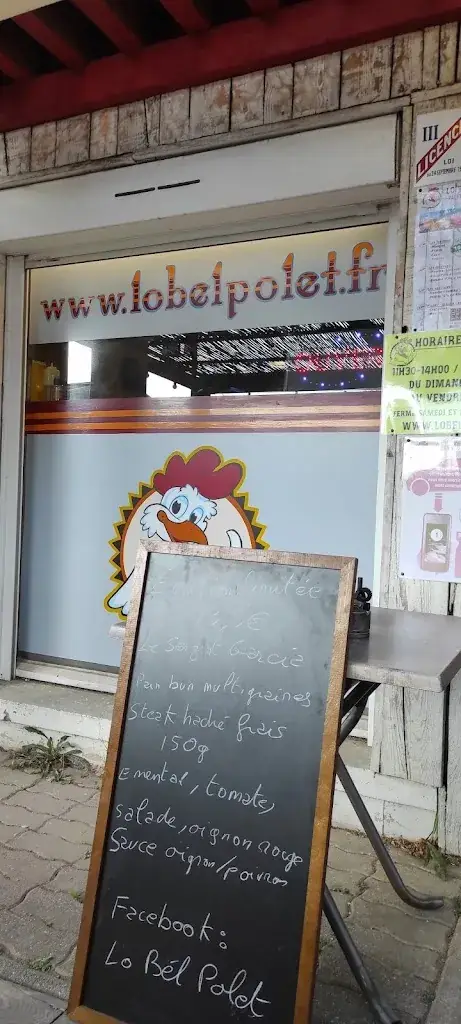 III
LICENCE
LOI
www.lobelpolet.fr
OUVERT
HORAIRE
11H30-14H00 /
DU DIMAN
FERMÉ SAMEDI ET
WWW.LOBEL
Le Sergent Garcia
Pain bun multigraines
Steak haché frais
150g
Emental, tomate,
salade, oignon rouge
Sauce oignon/poivron
Facebook:
Lo Bél Polet